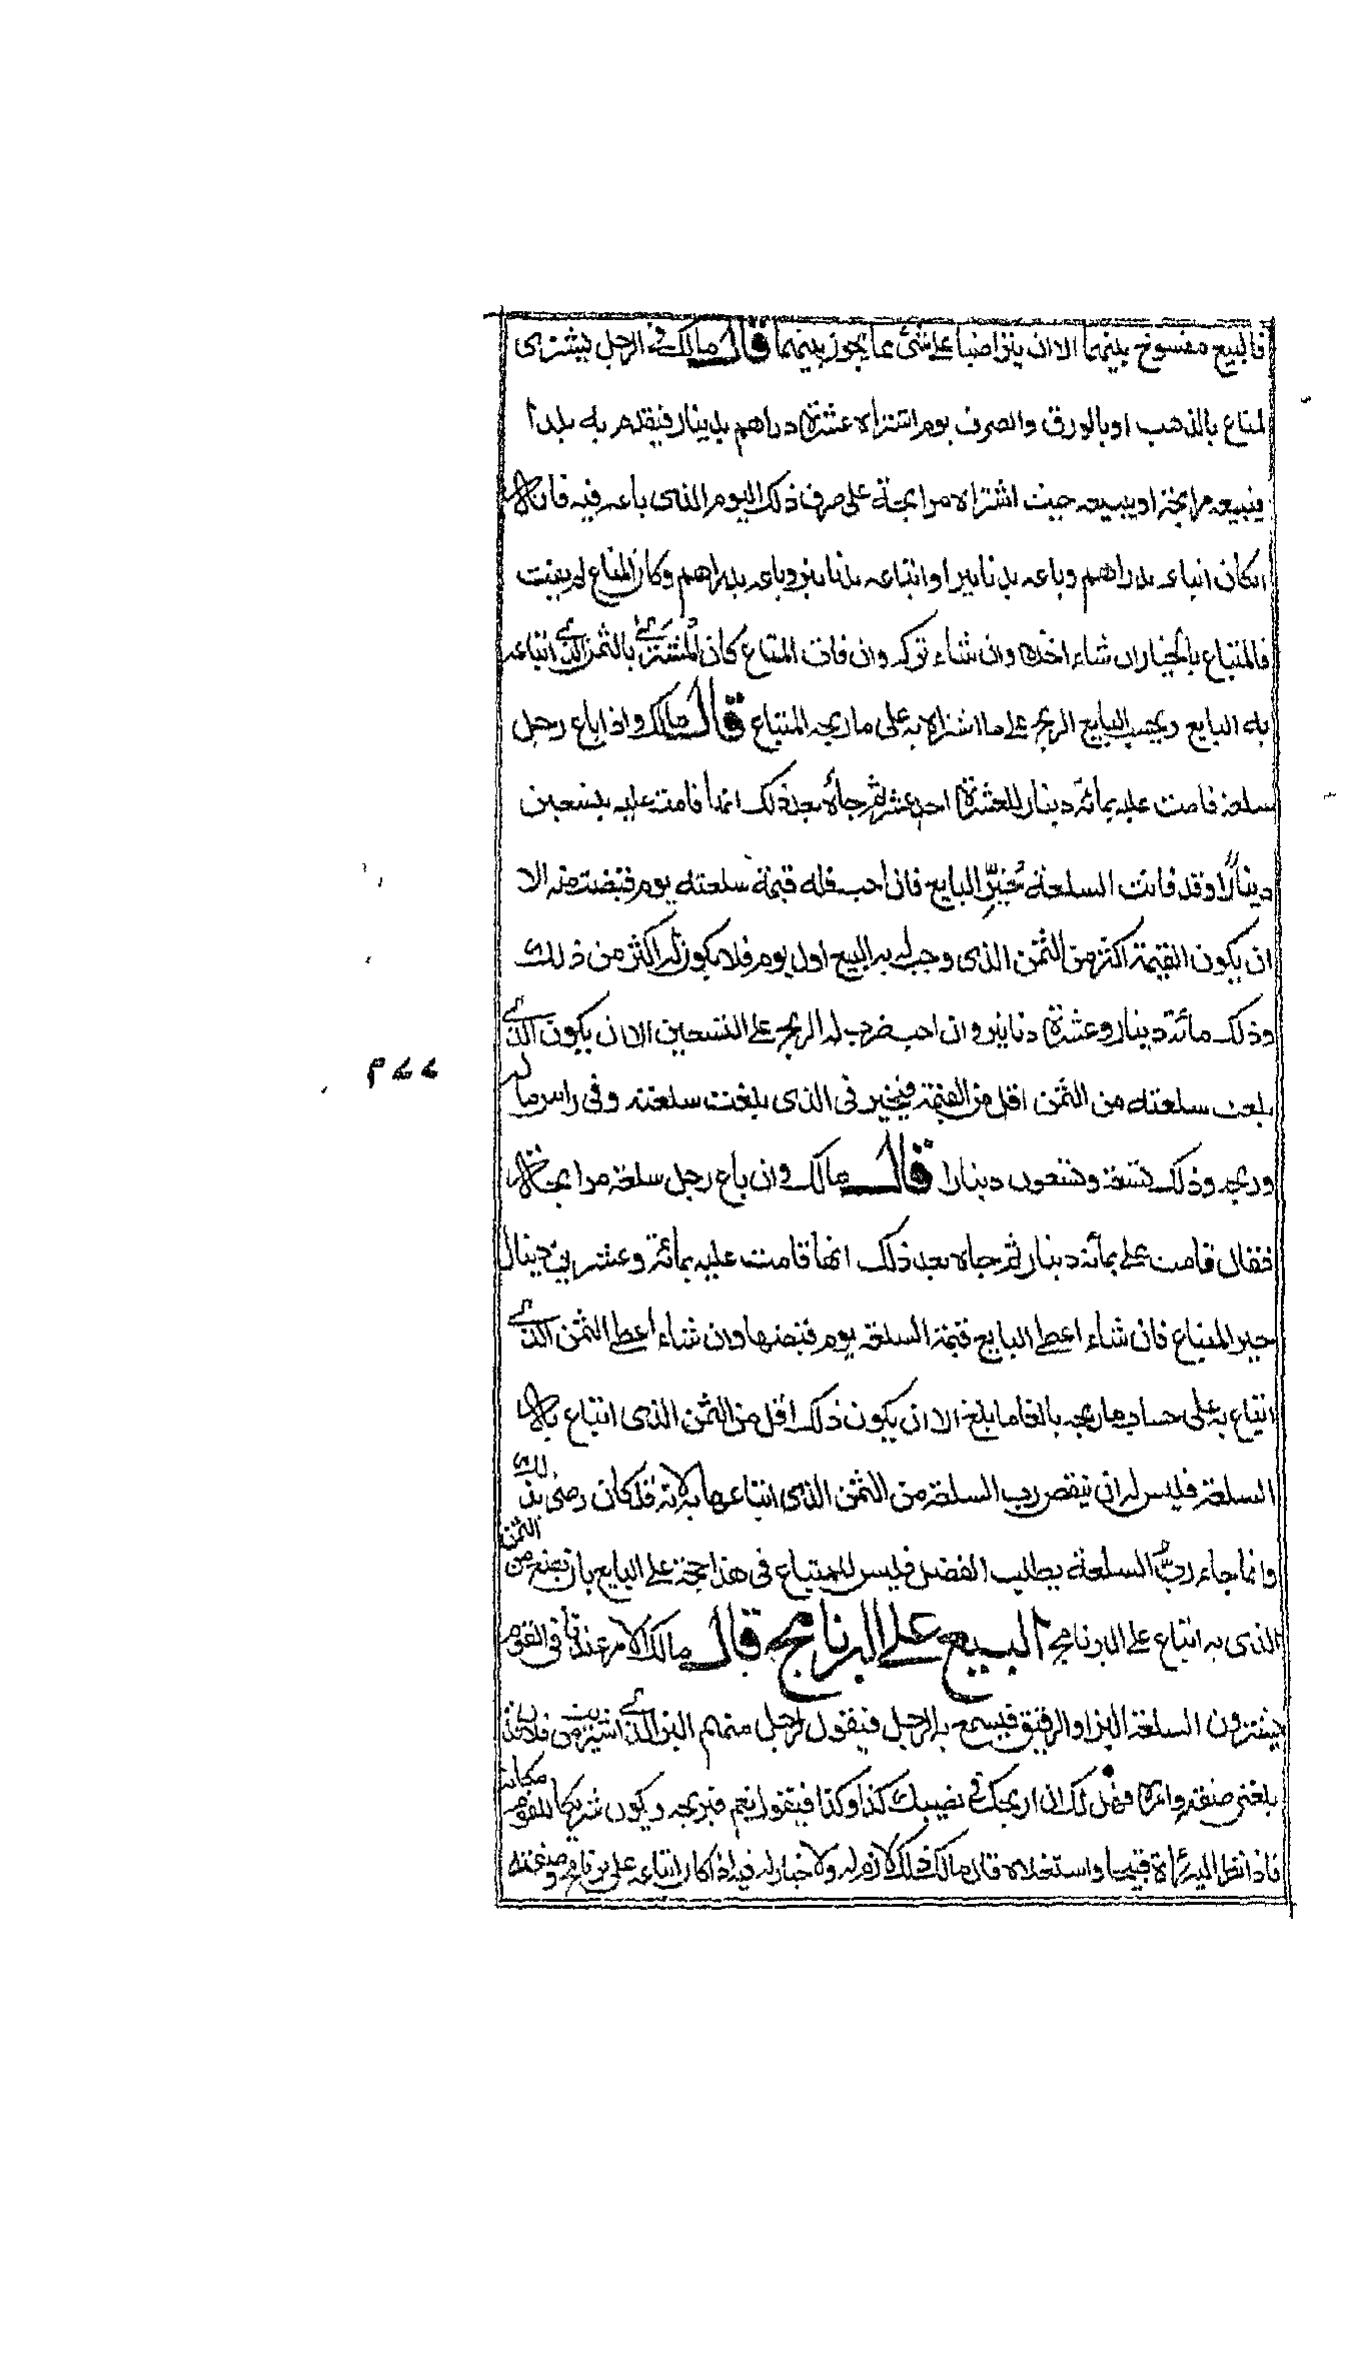 فالبيع مفسوخ بينهما الا ان يتراضيا على شئ مما يجوز بينهما قال مالك في الرجل يشترى
لمتاع بالذهب او بالورق والصرف يوم اشتراه عشرة دراهم بدينار فيقدم به بلدا
فيبيعه مرابحة او يبيعه حيث اشتراه مرابحة على صرف ذلك اليوم الذى باعه فيه فانه
ان كان ابتاعه بدراهم وباعه بدنانير او ابتاعه بدنانير وباعه بدراهم وكان المتاع لم يفت
فالمبتاع بالخيار ان شاء اخذه وان شاء تركه وان فات المتاع كان للمشترى بالثمن الذى ابتاعه
به البايع ويحسب للبايع الربح على ما اشتراه به على ما ربحه المبتاع قال مالك واذا باع رجل
سلعة قامت عليه بمائة دينار للعشرة احد عشر ثم جاءه بعد ذلك انما قامت عليه بتسعين
دينارا وقد فاتت السلعة خير البايع فان احب فله قيمة سلعته يوم قبضت منه الا
ان يكون القيمة اكثر من الثمن الذى وجب له به البيع اول يوم فلا يكون له اكثر من ذلك
وذلك مائة دينار وعشرة دنانير وان احب ضرب له الربح على التسعين الا ان يكون الذى
بلغت سلعته من الثمن اقل من القيمة فيخير فى الذى بلغت سلعته وفى راس ماله
وربحه وذلك تسعة وتسعون دينارا قال مالك وان باع رجل سلعة مرابحة
فقال قامت على بمائة دينار ثم جاه بعد ذلك انها قامت عليه بمائة وعشرين دينار
خير المبتاع فان شاء اعطى البايع قيمة السلعة يوم قبضها وان شاء اعطى الثمن الذى
ابتاع به على حساب ما ربحه بالغا ما بلغ الا ان يكون ذلك اقل من الثمن الذى ابتاع به
السلعة فليس له ان ينقص رب السلعة من الثمن الذى ابتاعها به لانه قد كان رضى بذلك
وانما جاء رب السلعة يطلب الفضل فليس للمبتاع فى هذا حجة على البايع بان يضع من الثمن
الذى به ابتاع على البرنامج البيع على البرنامج قال مالك الامر عندنا فى القوم
يشترون السلعة البز او الرقيق فيسمع به الرجل فيقول لرجل منهم البز الذى اشتريت من فلان قد
بلغنى صفته وامره فهل لك ان اربحك فى نصيبك كذا وكذا فيقول نعم فيربحه ويكون شريكا للقوم مكانه
فاذا نظر اليه رآه قبيحا واستغلاه قال مالك ذلك لازم له ولا خيار له فيه اذا كان ابتاعه على برنامج وصفته
٢٧٧